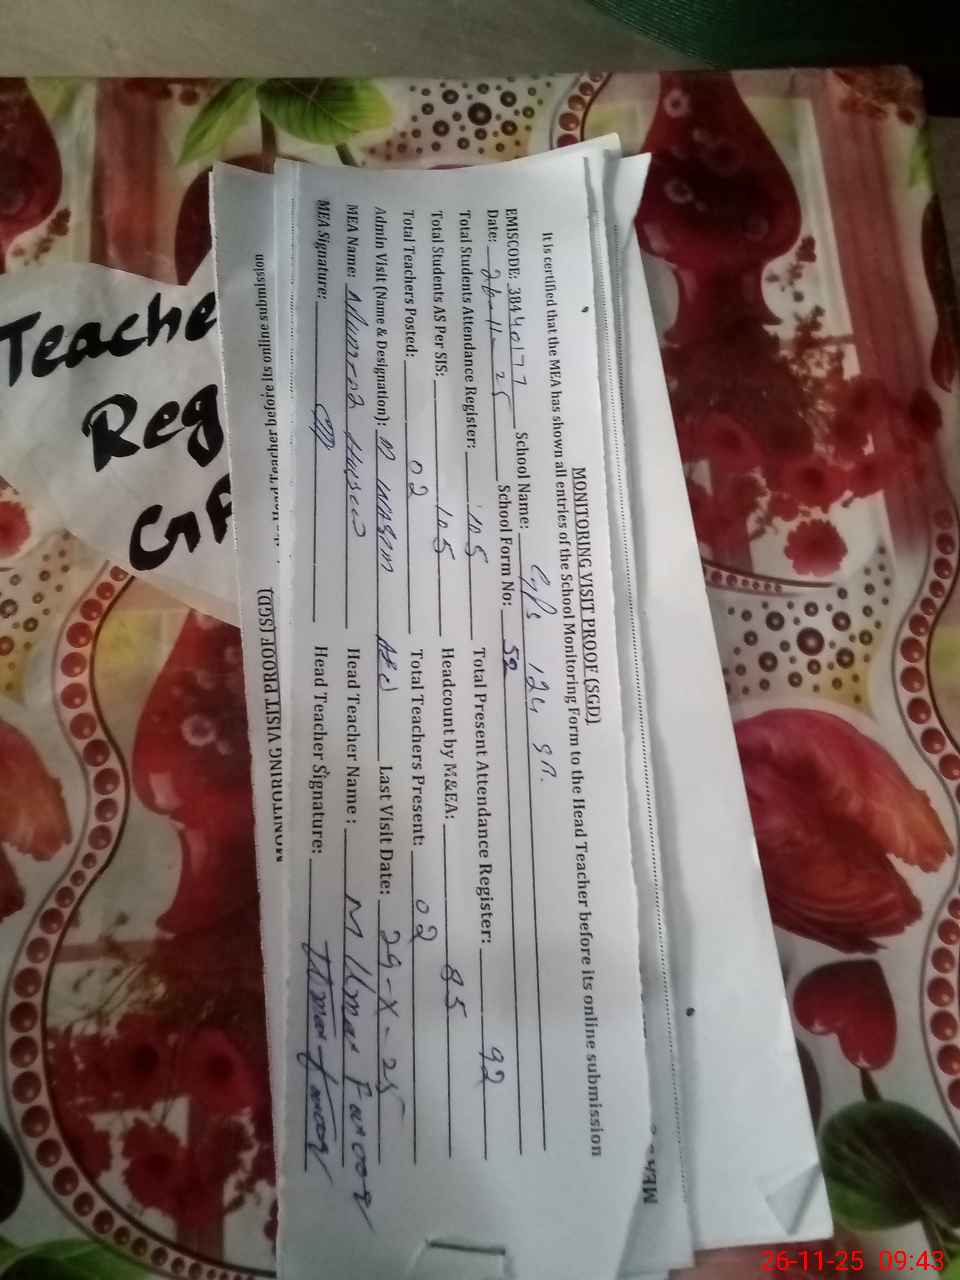 MONITORING VISIT PROOF (SGD)
It is certified that the MEA has shown all entries of the School Monitoring Form to the Head Teacher before its online submission
EMISCODE: 38440177 School Name: GPS 124 SB.
Date: 26-11-25 School Form No: 52
Total Students Attendance Register: 105 Total Present Attendance Register: 92
Total Students AS Per SIS: 105 Headcount by M&EA: 85
Total Teachers Posted: 02 Total Teachers Present: 02
Admin Visit (Name & Designation): M Wasim Last Visit Date: 29-X-25
MEA Name: Hussain Head Teacher Name: M Umar Farooq
MEA Signature: Head Teacher Signature: Umar Farooq
MONITORING VISIT PROOF (SGD)
Teacher before its online submission
Teache
Reg
GP
26-11-25 09:43